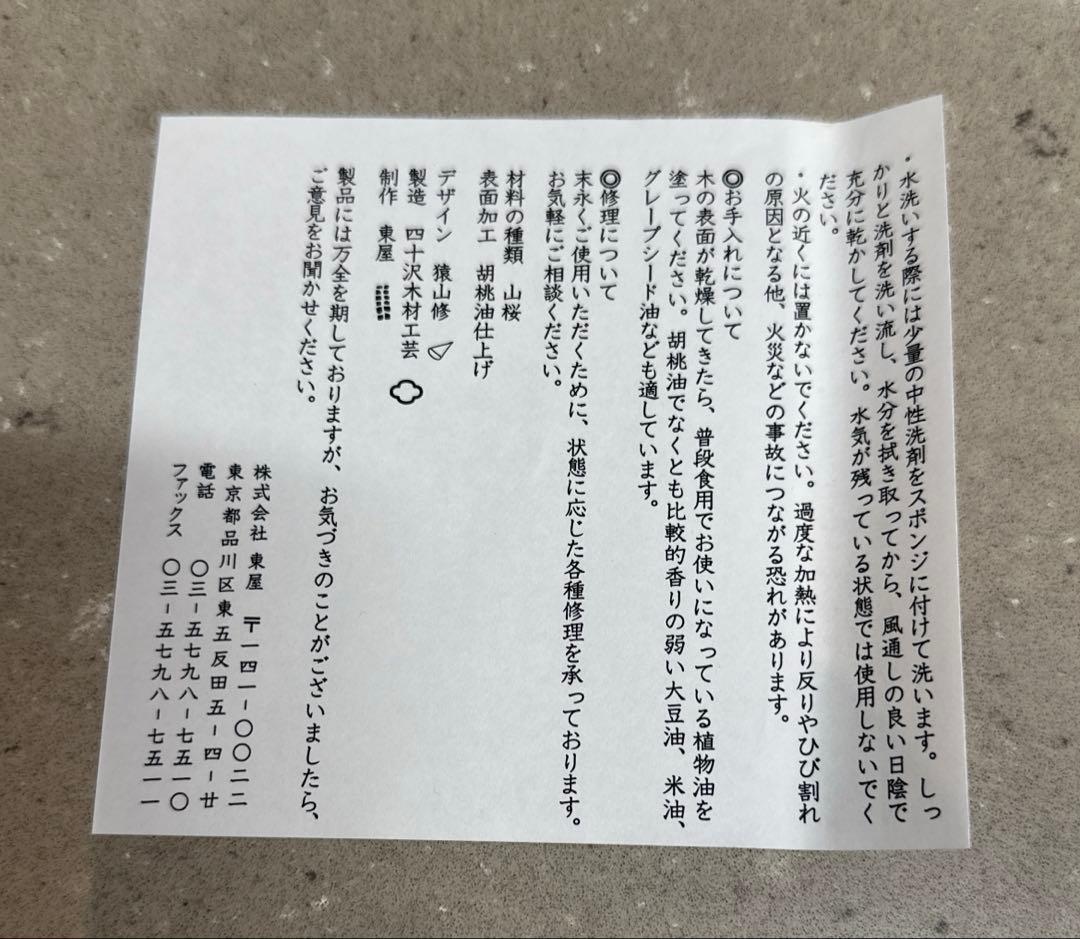 ・水洗いする際には少量の中性洗剤をスポンジに付けて洗います。しっ
かりと洗剤を洗い流し、水分を拭き取ってから、風通しの良い日陰で
充分に乾かしてください。水気が残っている状態では使用しないでく
ださい。
・火の近くには置かないでください。過度な加熱により反りやひび割れ
の原因となる他、火災などの事故につながる恐れがあります。
◎お手入れについて
木の表面が乾燥してきたら、普段食用でお使いになっている植物油を
塗ってください。胡桃油でなくとも比較的香りの弱い大豆油、米油、
グレープシード油なども適しています。
◎修理について
末永くご使用いただくために、状態に応じた各種修理を承っております。
お気軽にご相談ください。
材料の種類 山桜
表面加工 胡桃油仕上げ
デザイン 猿山修
製造 四十沢木材工芸
制作 東屋
製品には万全を期しておりますが、お気づきのことがございましたら、
ご意見をお聞かせください。
株式会社 東屋 〒一四一-〇〇二二
東京都品川区東五反田五-四-廿
電話 〇三-五七九八-七五一〇
ファックス 〇三-五七九八-七五一一